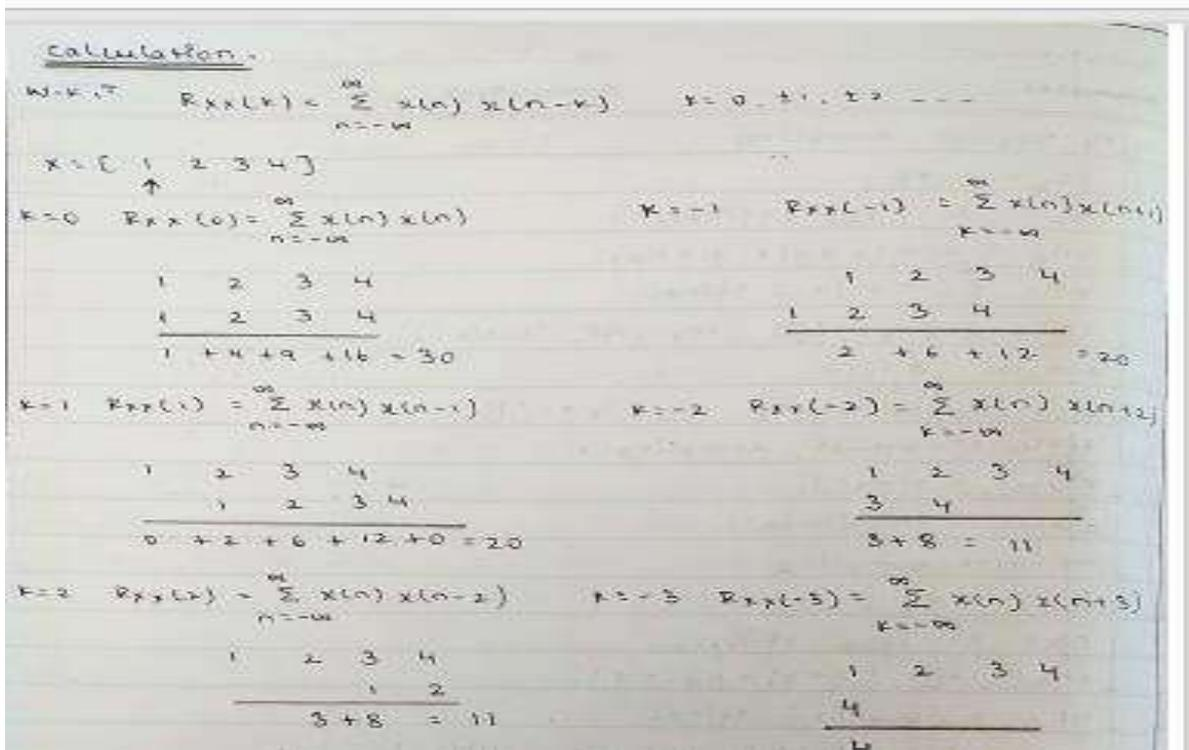 Calculation.
W.K.T Rxx(k) = ∞ Σ n=-∞ x(n) x(n-k) k = 0, ±1, ±2 ----
x = { 1 2 3 4 }
↑
k=0 Rxx(0) = ∞ Σ n=-∞ x(n) x(n)
1 2 3 4
1 2 3 4
1 + 4 + 9 + 16 = 30
k=1 Rxx(1) = ∞ Σ n=-∞ x(n) x(n-1)
1 2 3 4
1 2 3 4
0 + 2 + 6 + 12 + 0 = 20
k=2 Rxx(2) = ∞ Σ n=-∞ x(n) x(n-2)
1 2 3 4
1 2
3 + 8 = 11
k = -1 Rxx(-1) = ∞ Σ k=-∞ x(n) x(n+1)
1 2 3 4
1 2 3 4
2 + 6 + 12 = 20
k = -2 Rxx(-2) = ∞ Σ k=-∞ x(n) x(n+2)
1 2 3 4
3 4
3 + 8 = 11
k = -3 Rxx(-3) = ∞ Σ k=-∞ x(n) x(n+3)
1 2 3 4
4
4